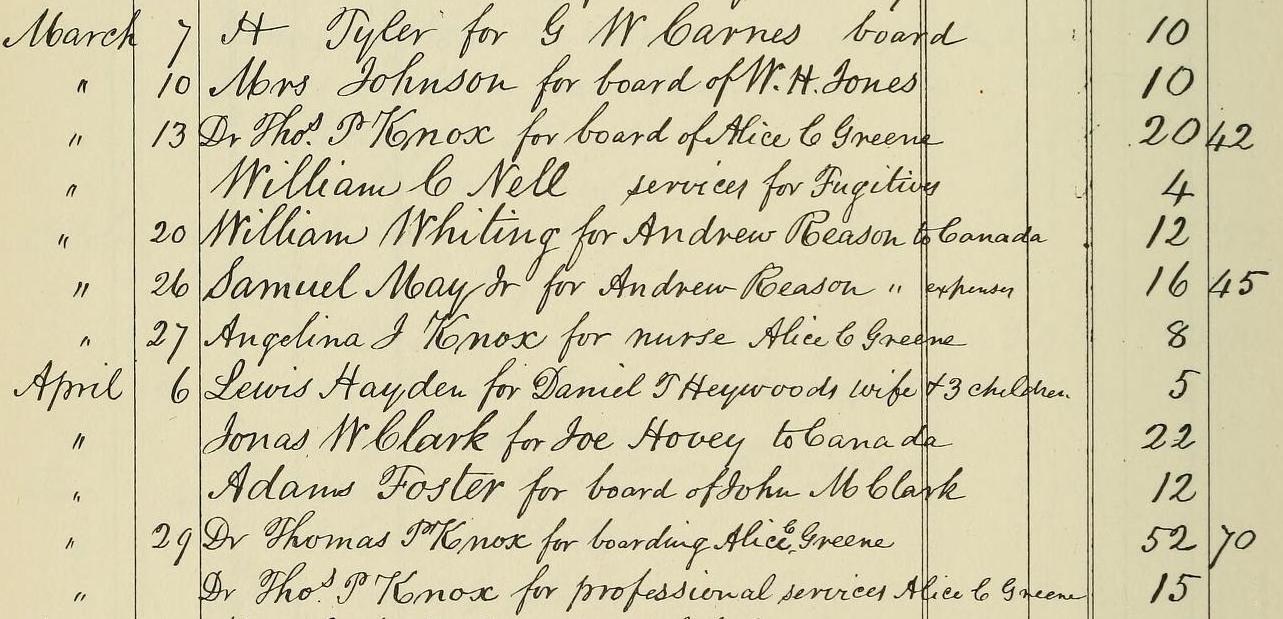 March 7 H Tyler for G W Carnes board 10
" 10 Mrs Johnson for board of W. H. Jones 10
" 13 Dr Thos. P Knox for board of Alice C Greene 20 42
" William C Nell services for Fugitives 4
" 20 William Whiting for Andrew Reason to Canada 12
" 26 Samuel May Jr for Andrew Reason " expenses 16 45
" 27 Angelina J Knox for nurse Alice C Greene 8
April 6 Lewis Hayden for Daniel T Heywoods wife & 3 children 5
" Jonas W Clark for Joe Hovey to Canada 22
" Adams Foster for board of John M Clark 12
" 29 Dr Thomas P Knox for boarding Alice C Greene 52 70
" Dr Thos P Knox for professional services Alice C Greene 15